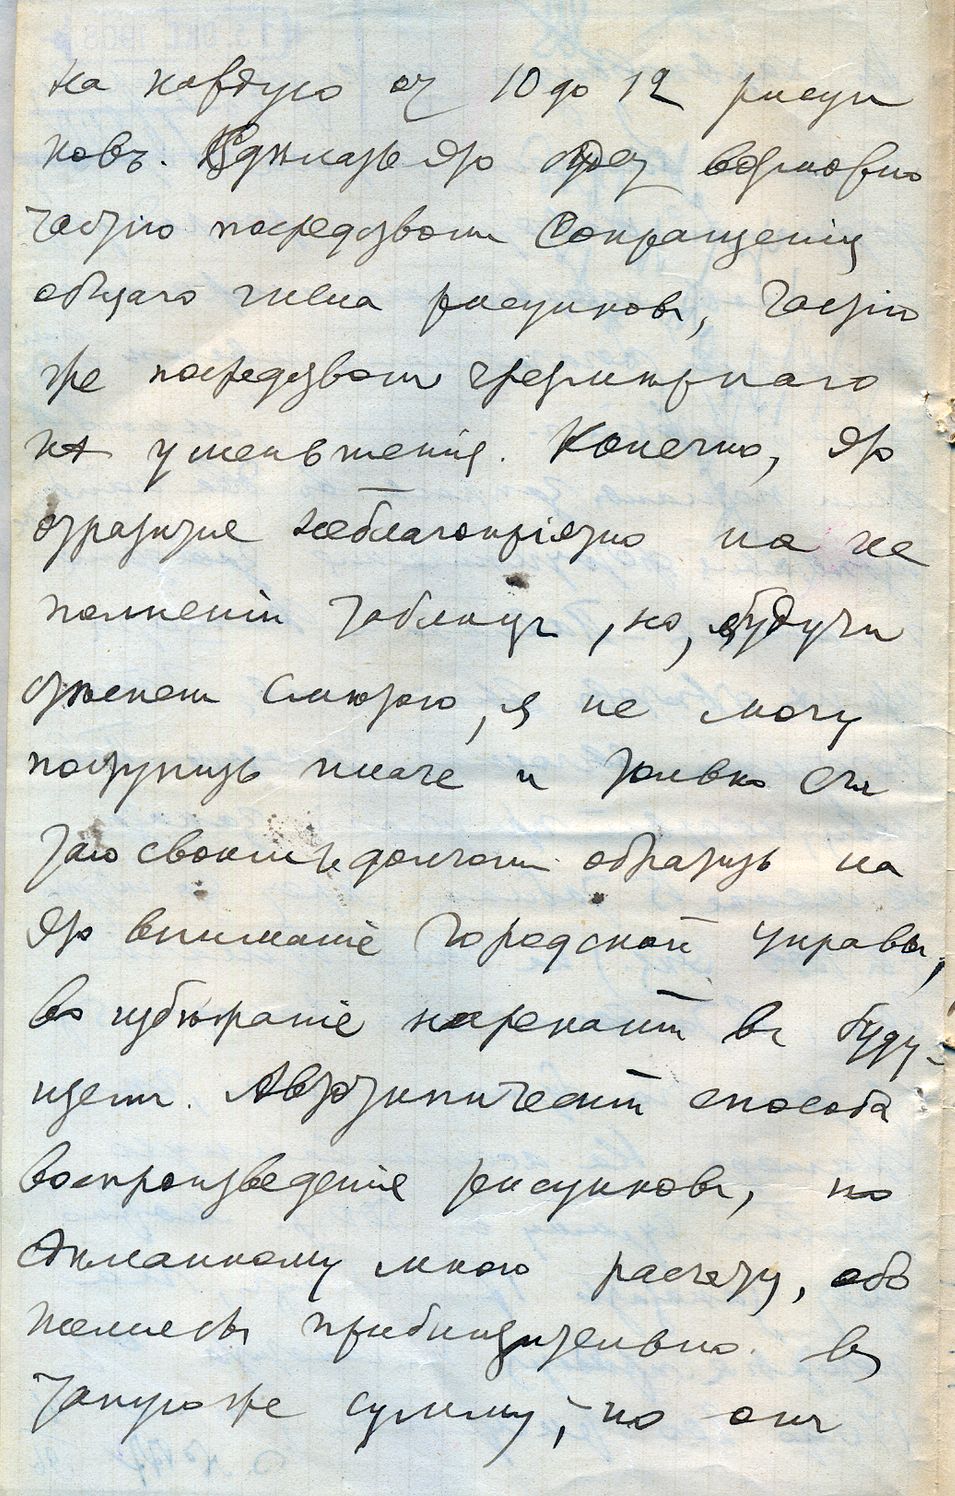 на каждую от 10 до 12 рисун
ковъ. Сдѣлать это возможно
частію посредствомъ Сокращенія
общаго числа рисунковъ, частію
же посредствомъ чрезмѣрнаго
ихъ уменьшенія. Конечно, это
отразится неблагопріятно на ис
полненіи таблицъ, но, будучи
стѣсненъ смѣтою, я не могу
поступить иначе и только счи
таю своимъ долгомъ обратить на
это вниманіе Городской Управы,
во избѣжаніе нареканій въ буду-
щемъ. Автотипическій способъ
воспроизведенія рисунковъ, по
сдѣланному мною расчету, обо
шелся бы приблизительно въ
такую же сумму, но онъ